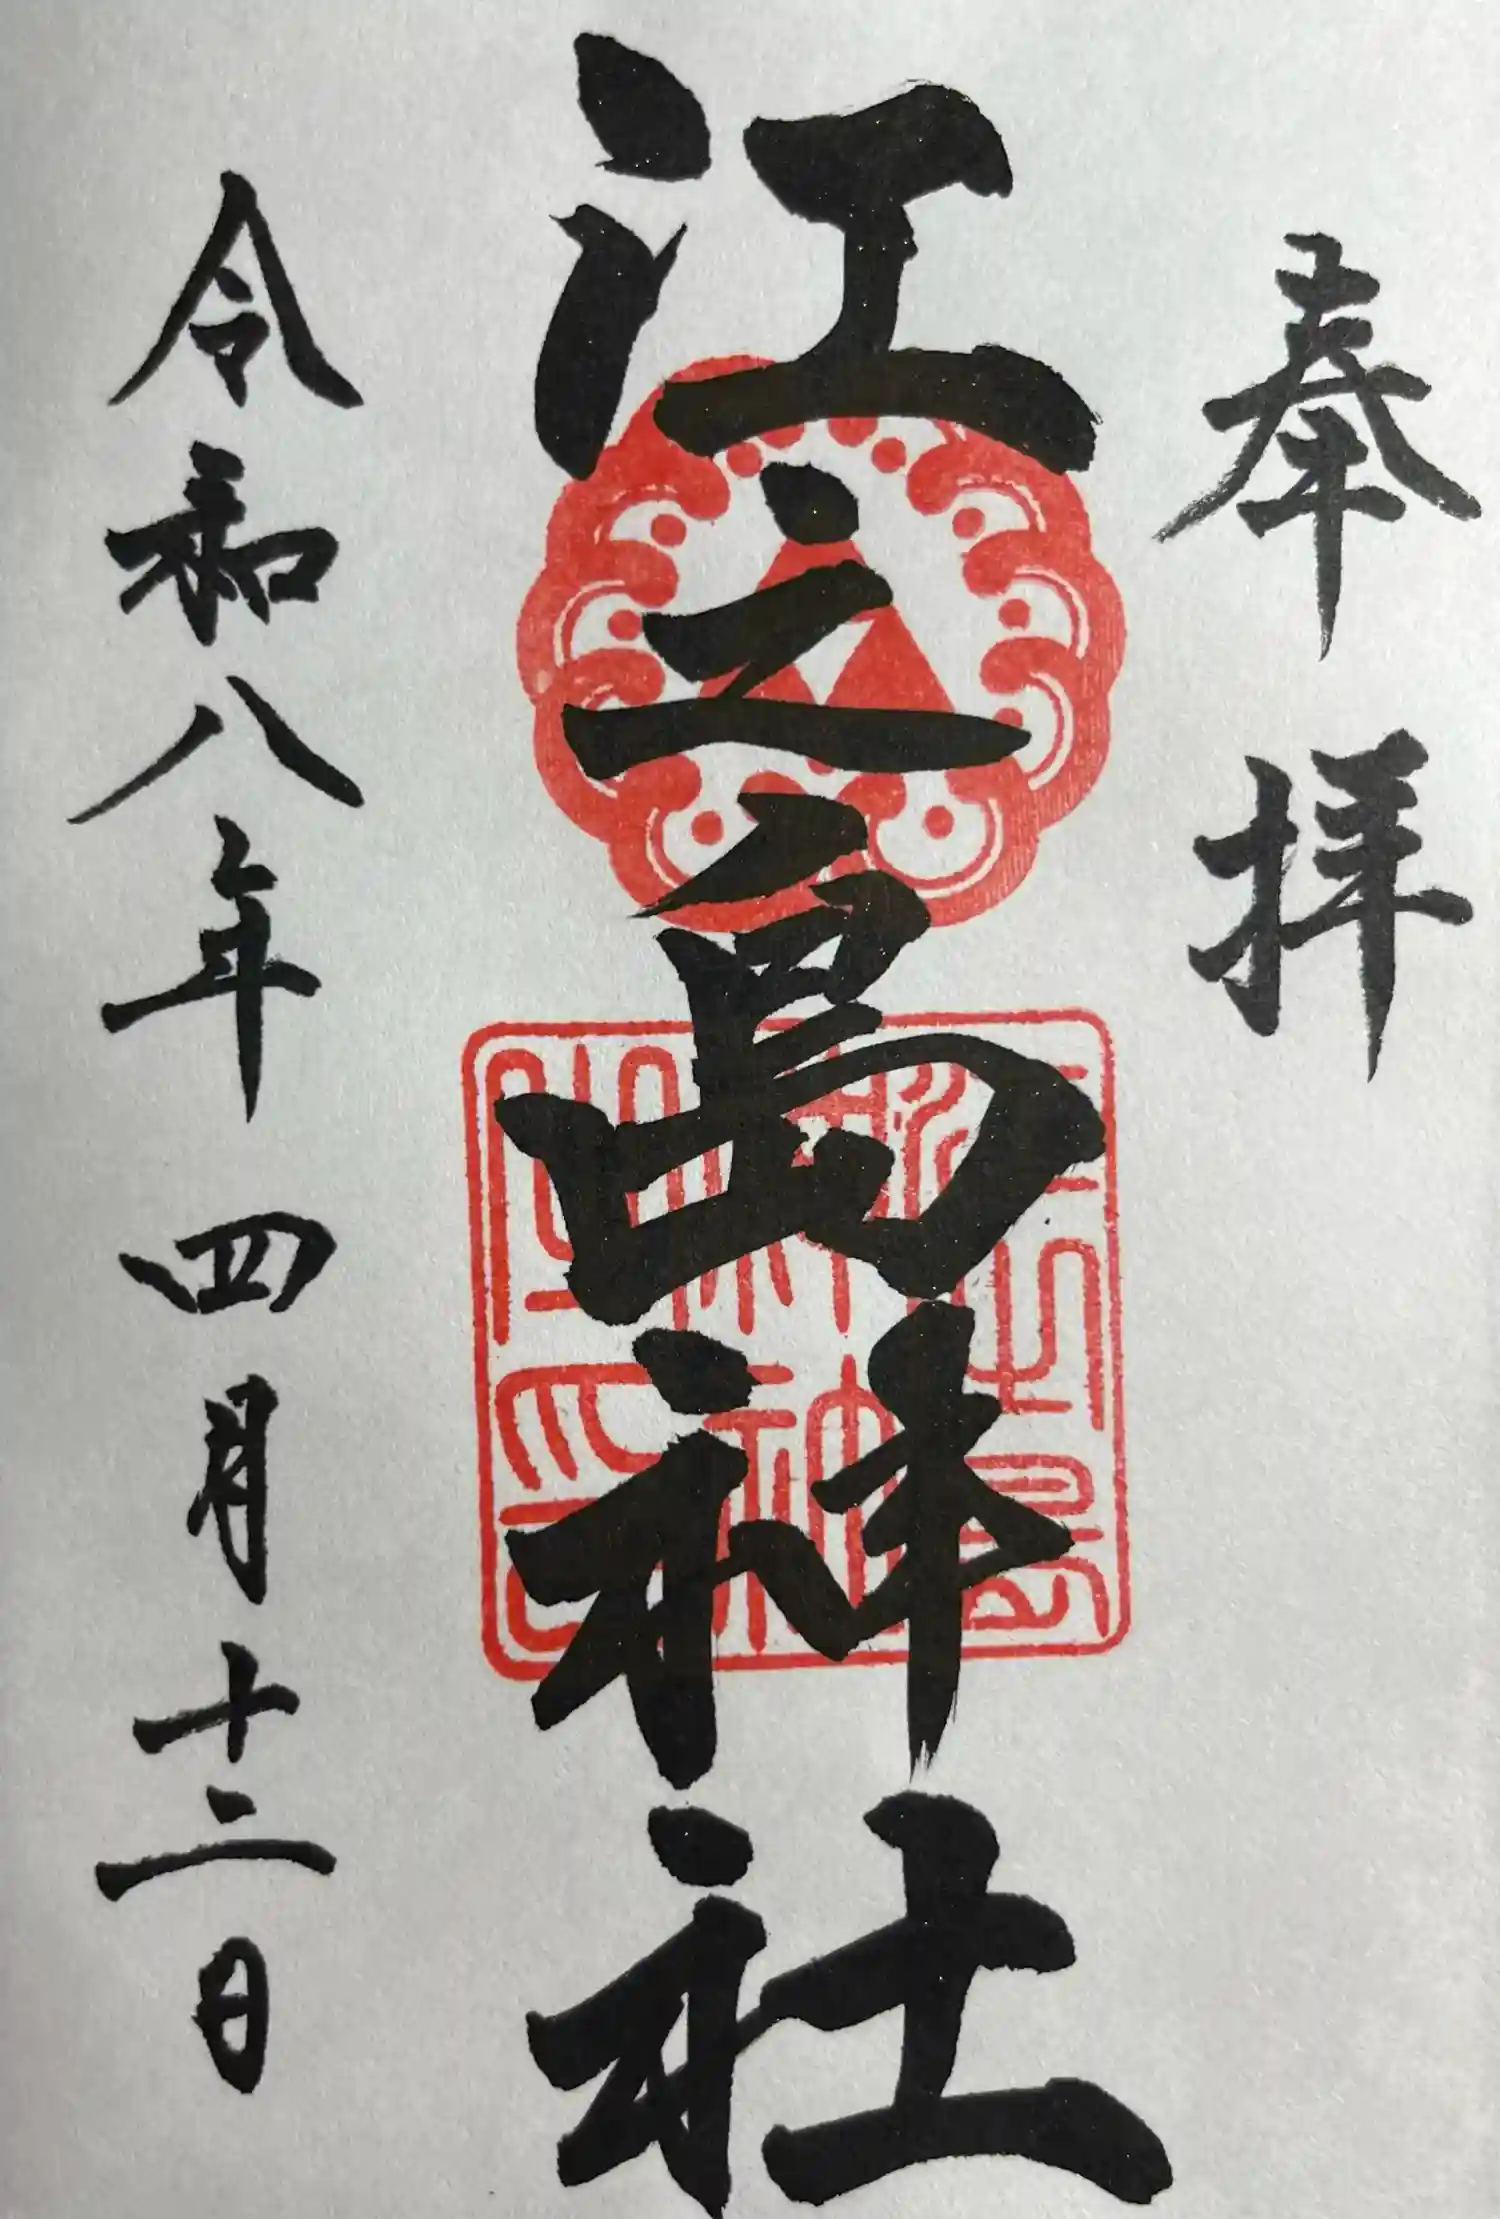 奉拝
江之島神社
令和八年四月十二日